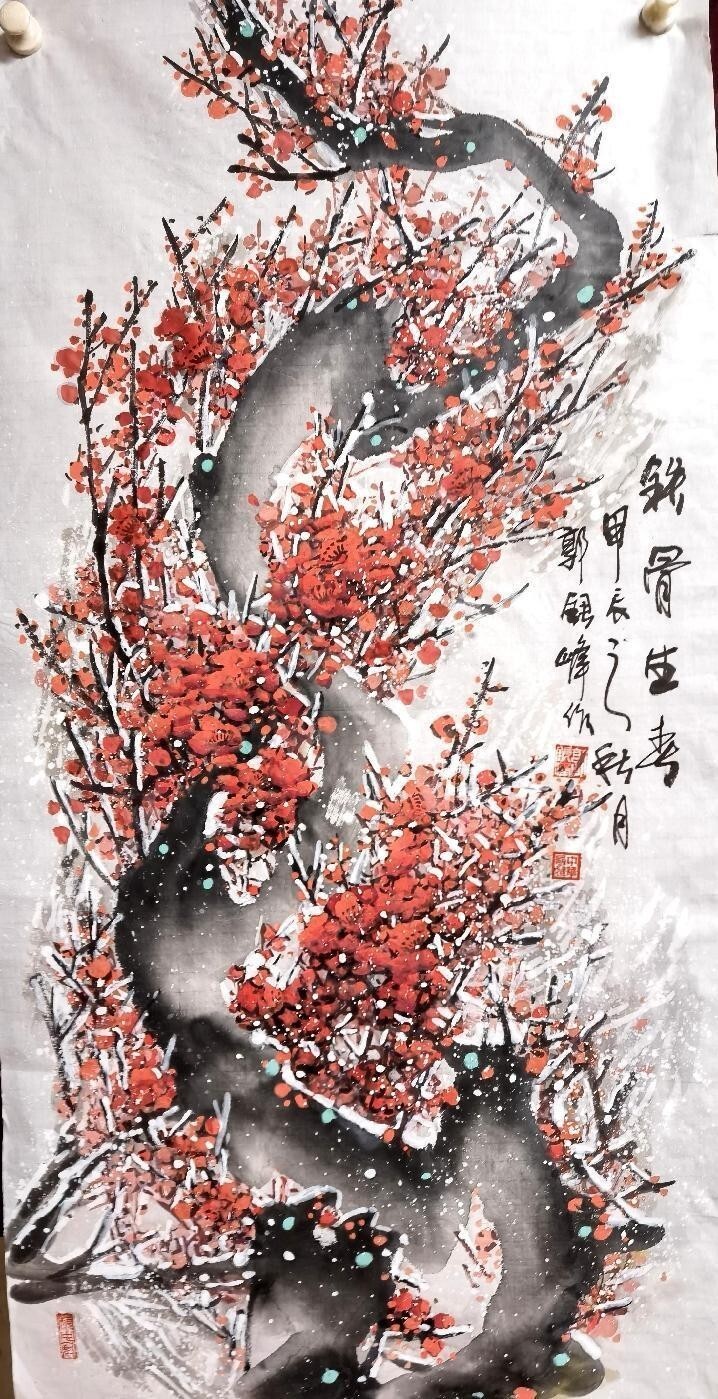 铁骨生春
甲辰之秋月
郭银峰作